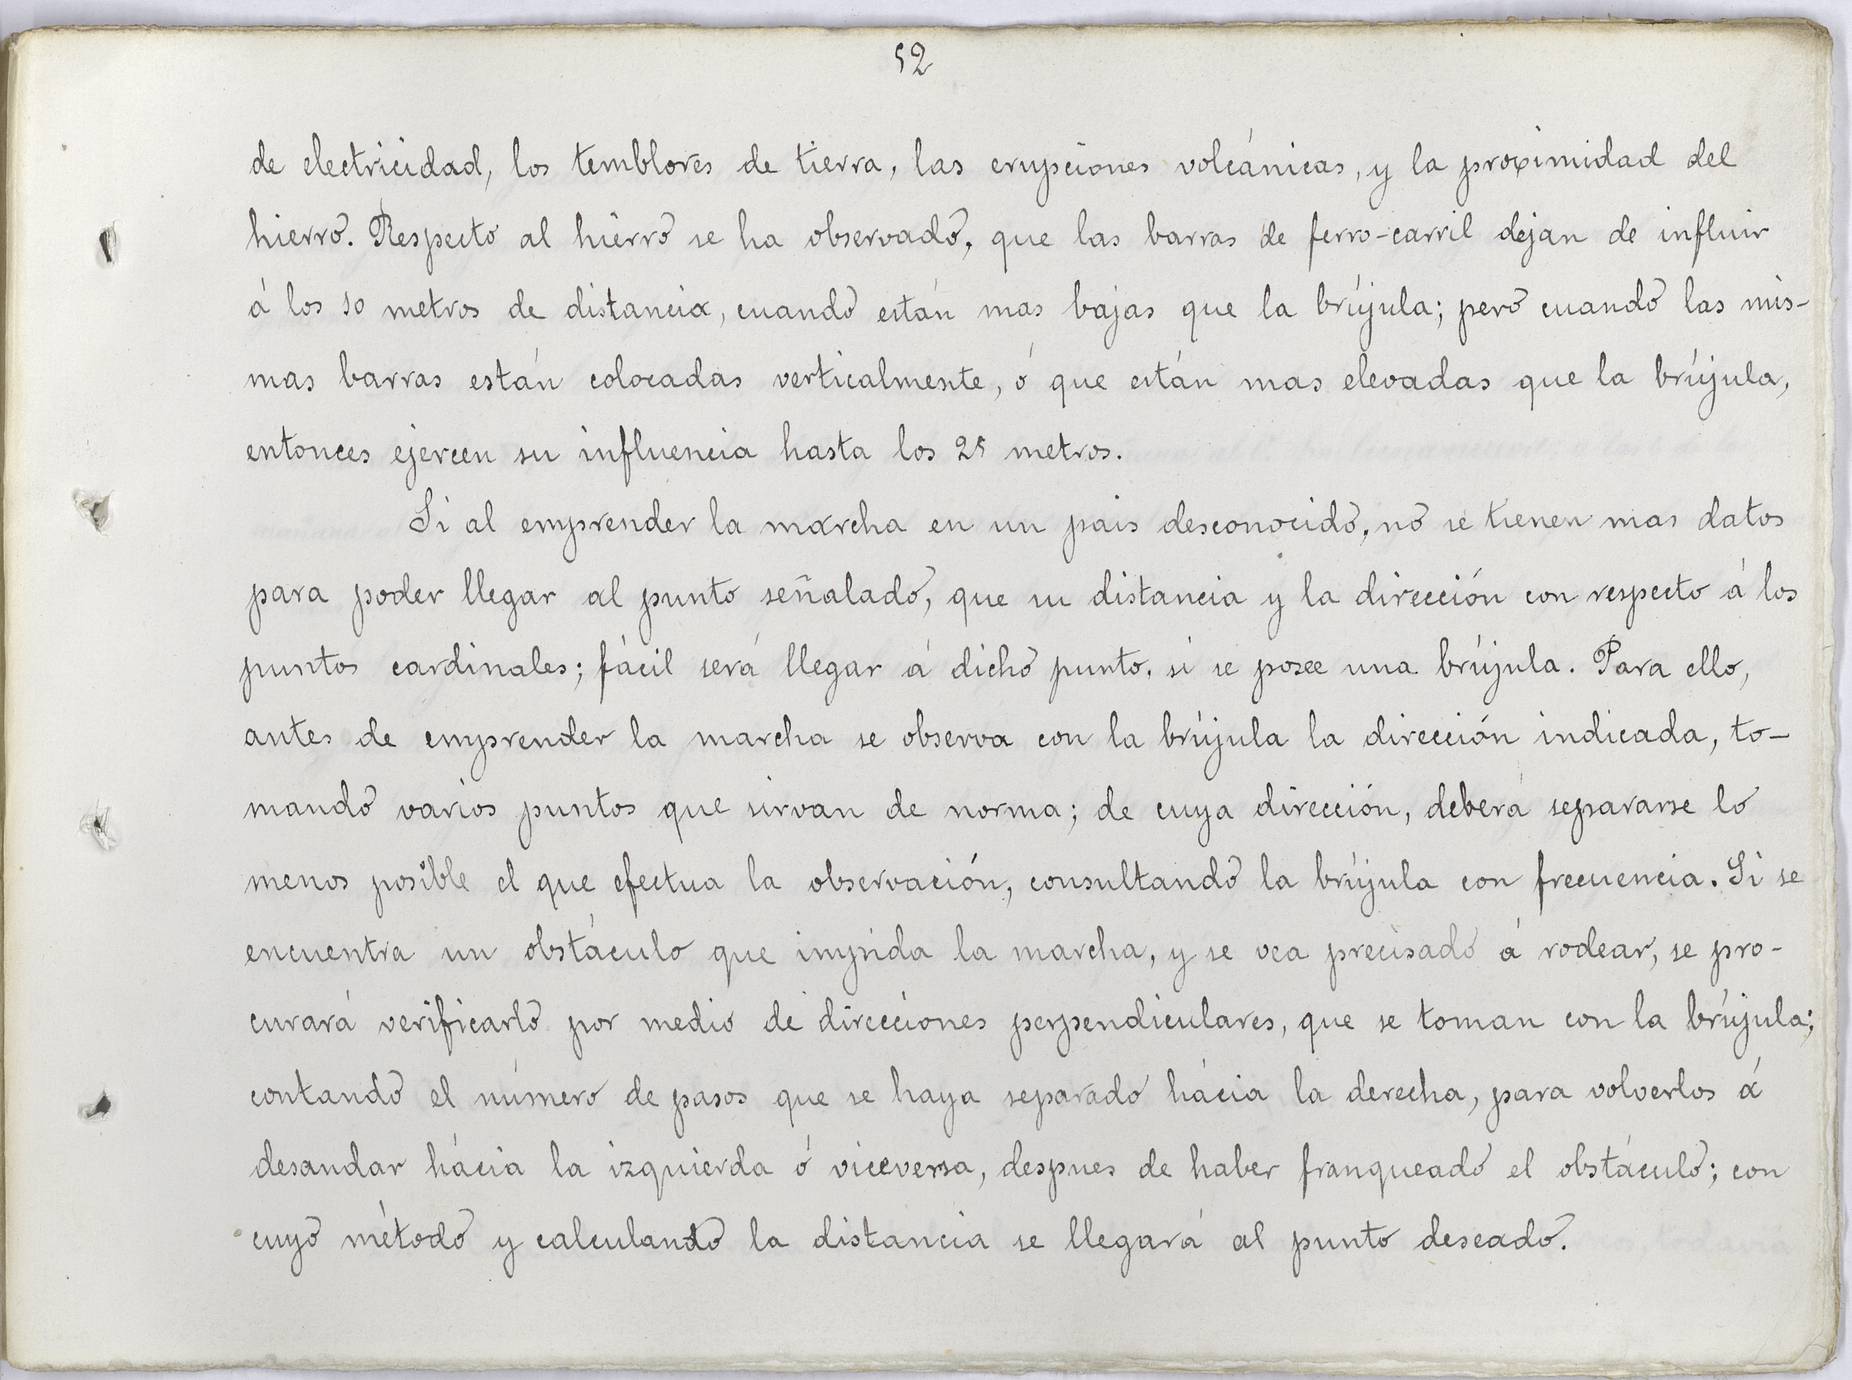 52
de electricidad, los temblores de tierra, las erupciones volcánicas, y la proximidad del
hierro. Respecto al hierro se ha observado, que las barras de ferro-carril dejan de influir
á los 10 metros de distancia, cuando están mas bajas que la brújula; pero cuando las mis-
mas barras están colocadas verticalmente, ó que están mas elevadas que la brújula,
entonces ejercen su influencia hasta los 25 metros.
Si al emprender la marcha en un pais desconocido, no se tienen mas datos
para poder llegar al punto señalado, que su distancia y la dirección con respecto á los
puntos cardinales; fácil será llegar á dicho punto, si se posee una brújula. Para ello,
antes de emprender la marcha se observa con la brújula la dirección indicada, to-
mando varios puntos que sirvan de norma; de cuya dirección, deberá separarse lo
menos posible el que efectua la observación, consultando la brújula con frecuencia. Si se
encuentra un obstáculo que impida la marcha, y se vea precisado á rodear, se pro-
curará verificarlo por medio de direcciones perpendiculares, que se toman con la brújula;
contando el número de pasos que se haya separado hácia la derecha, para volverlos á
desandar hácia la izquierda ó viceversa, despues de haber franqueado el obstáculo; con
cuyo método y calculando la distancia se llegará al punto deseado.